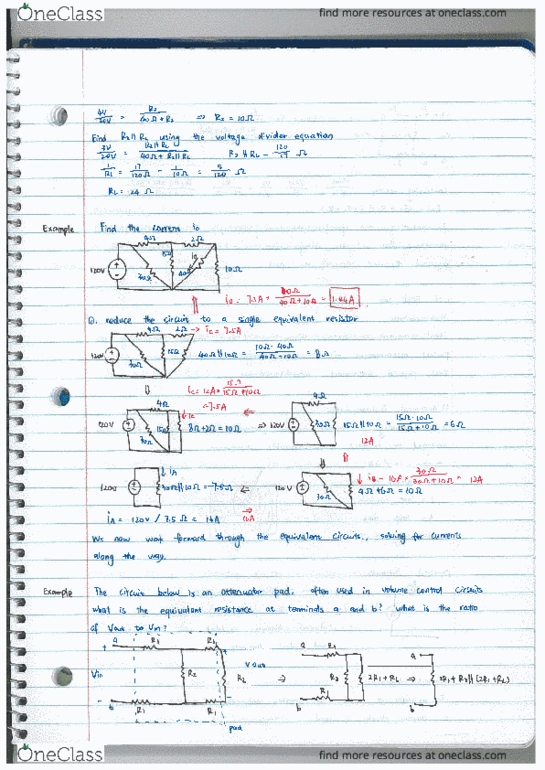 OneClass
find more resources at oneclass.com
4V/20V = R2/(40Ω + R2) ⇒ R2 = 10Ω
Find R2∥RL using the voltage divider equation
3V/20V = R2∥RL/(40Ω + R2∥RL) R2∥RL = 120/17 Ω
1/RL = 17/120Ω - 1/10Ω = 5/120 Ω
RL = 24 Ω
Example Find the current io
4Ω 2Ω
120V 30Ω 15Ω 40Ω io 10Ω
Q. reduce the circuit to a single equivalent resistor
4Ω 2Ω → ic = 7.5A
120V 30Ω 15Ω 40Ω∥10Ω = 10Ω·40Ω/(40Ω+10Ω) = 8Ω
4Ω
120V 30Ω 15Ω 8Ω+2Ω = 10Ω ⇒ 120V 30Ω 15Ω∥10Ω = 15Ω·10Ω/(15Ω+10Ω) = 6Ω
12A
120V iA 30Ω∥10Ω = 7.5Ω ⇐ 120V 30Ω 4Ω+6Ω = 10Ω
iA = 120V / 7.5Ω = 16A
We now work forward through the equivalent circuits, solving for currents
along the way.
Example The circuit below is an attenuator pad, often used in volume control circuits
what is the equivalent resistance at terminals a and b? what is the ratio
of Vout to Vin?
+ a R1 R1
Vin R2 RL Vout ⇒ a R1 R2 2R1+RL ⇒ a 2R1 + R2∥(2R1+RL)
- b R1 R1 b R1 b
pad
OneClass
find more resources at oneclass.com